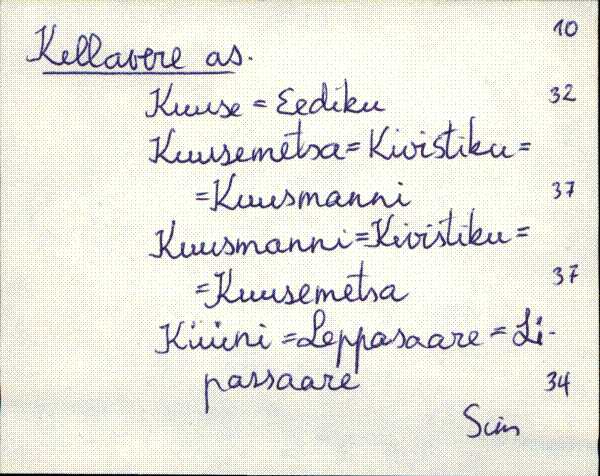 10
Kellavere as.
Kuuse = Eediku 32
Kuusemetsa = Kivistiku =
= Kuusmanni 37
Kuusmanni = Kivistiku =
= Kuusemetsa 37
Küüni = Leppasaare = Li-
passaare 34